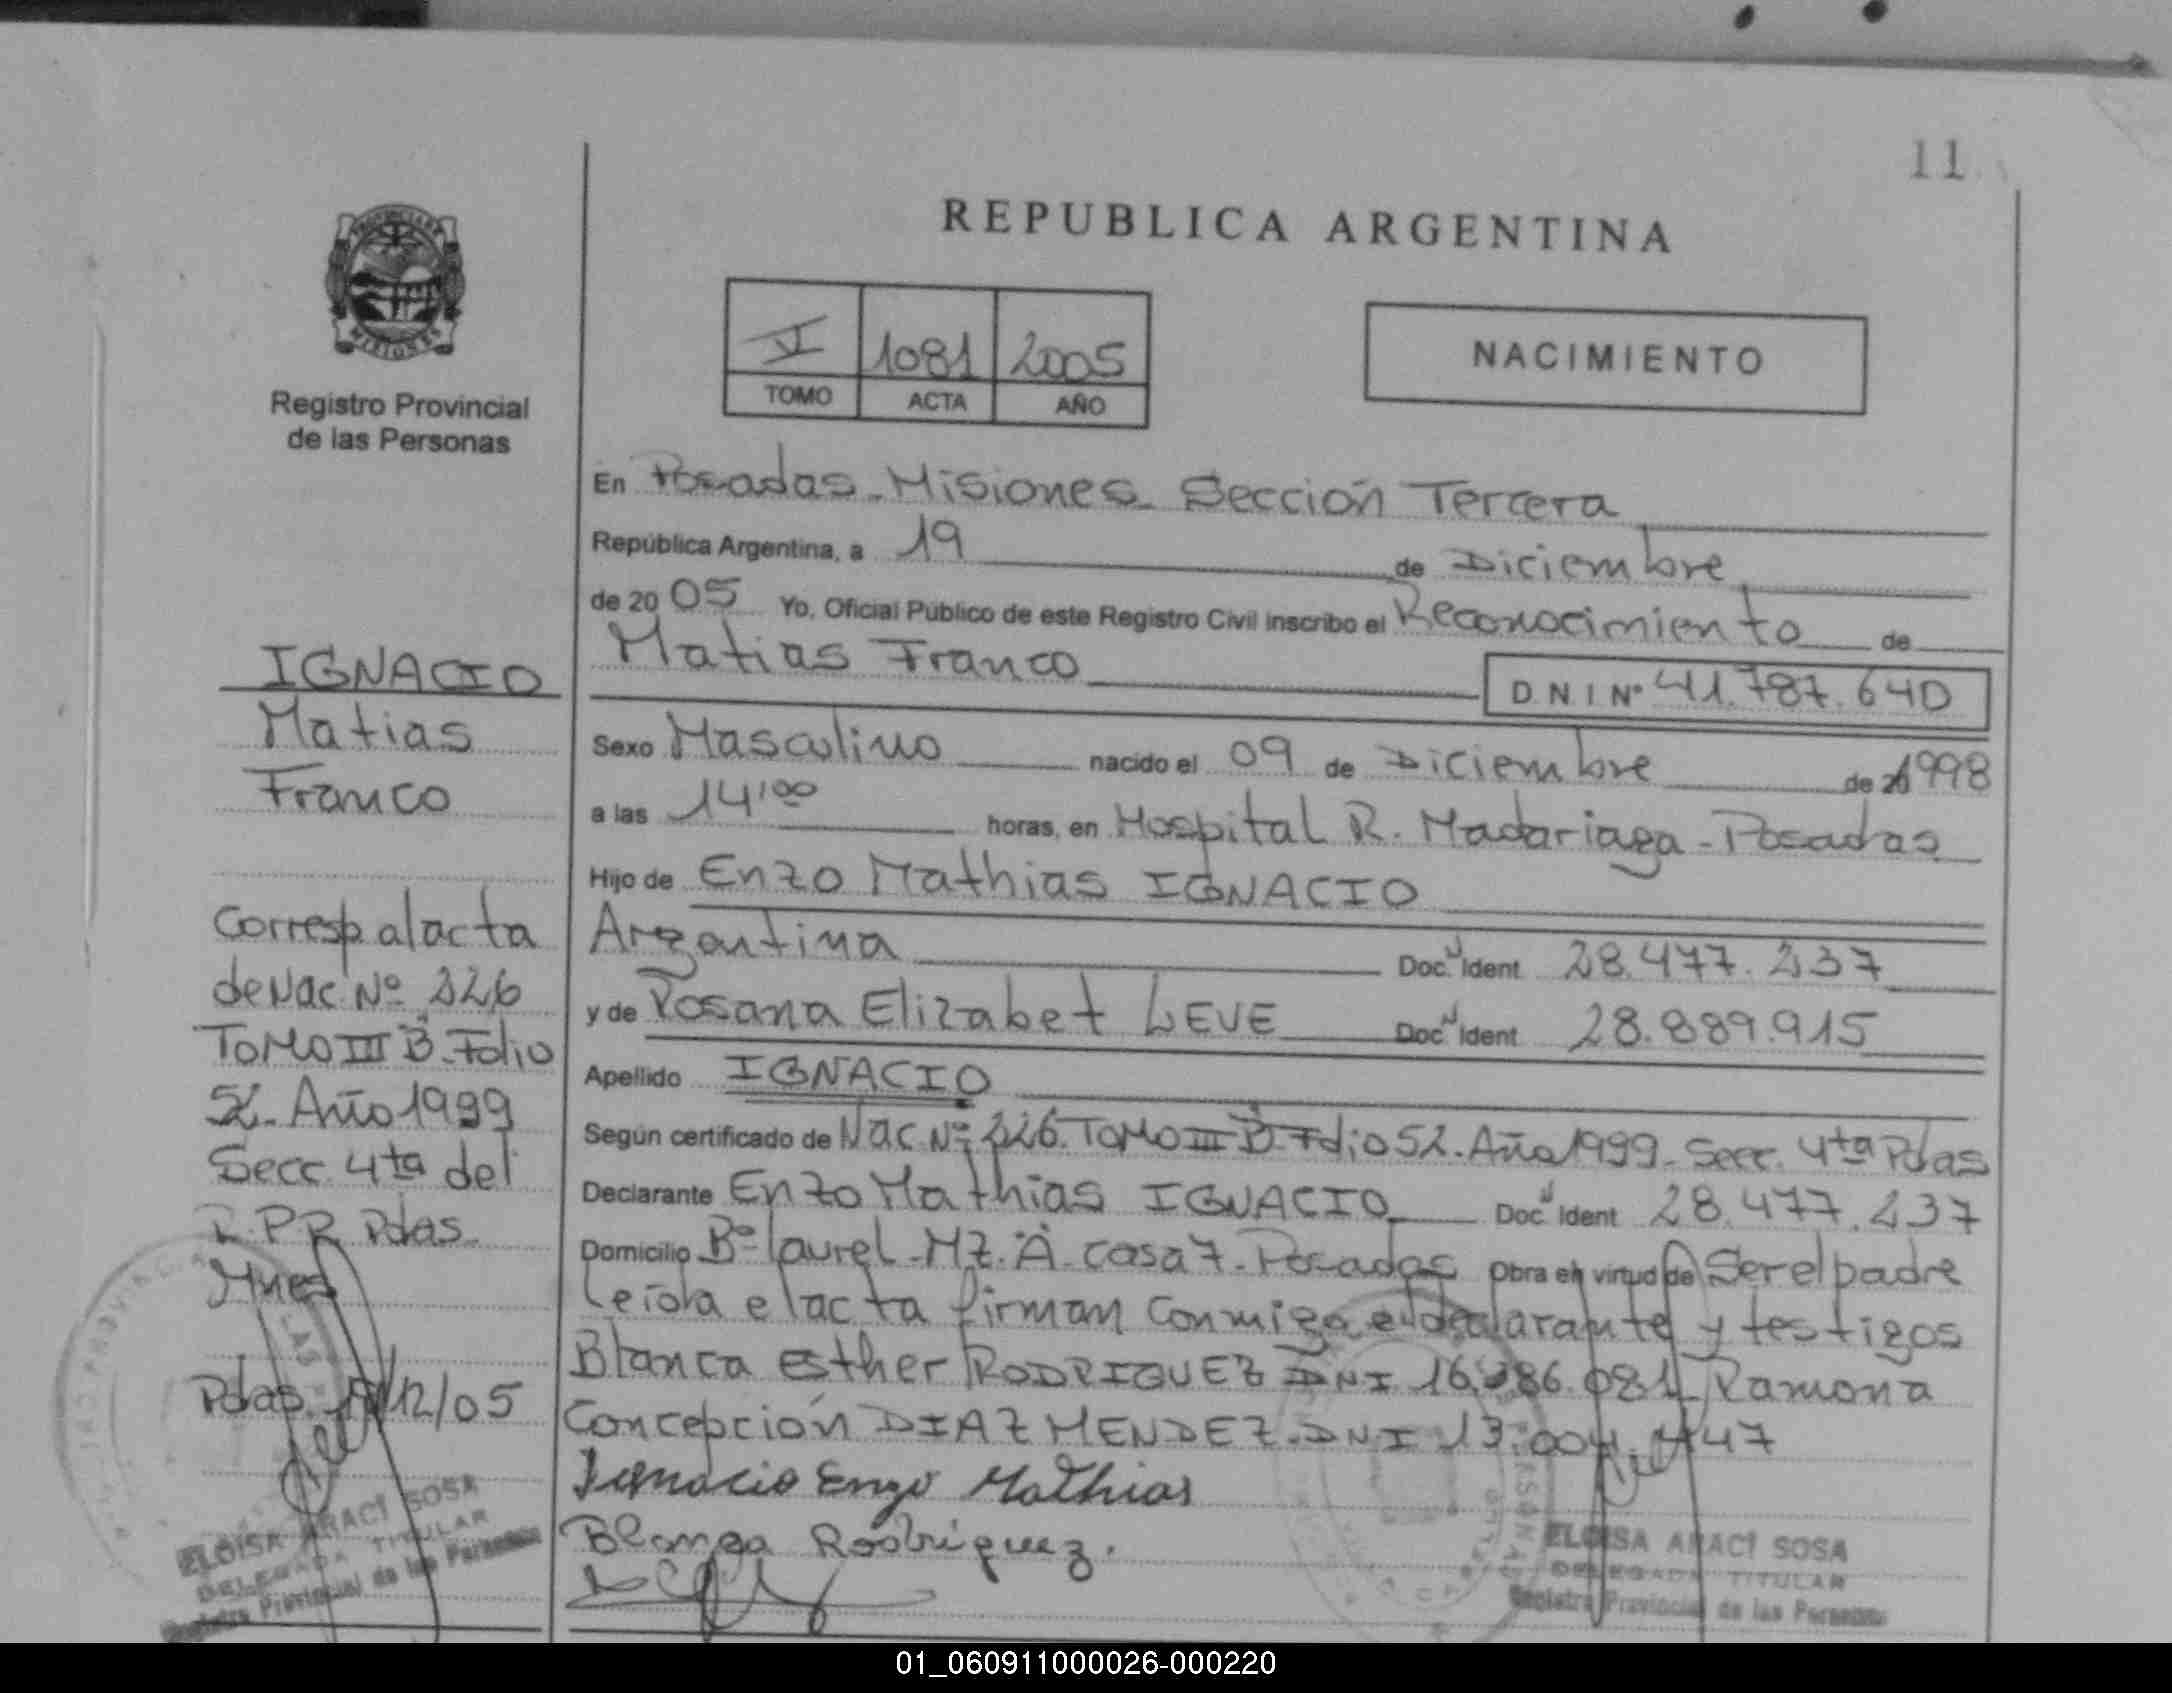 11
REPUBLICA ARGENTINA
PROVINCIA DE
MISIONES
Registro Provincial
de las Personas
1081 2005
TOMO ACTA AÑO
NACIMIENTO
En Posadas-Misiones-Sección Tercera
República Argentina, a 19 de Diciembre
de 2005 Yo, Oficial Público de este Registro Civil inscribo el Reconocimiento de
Matias Franco
D.N.I Nº 41.787.640
Sexo Masculino nacido el 09 de Diciembre de 1998
a las 14'00 horas, en Hospital R. Madariaga-Posadas
Hijo de Enzo Mathias IGNACIO
Argentina Doc. Ident 28.477.237
y de Rosana Elizabet LEVE Doc Ident 28.889.915
Apellido IGNACIO
Según certificado de Nac. Nº 226. TOMO III B. Folio 52. Año 1999- Secc. 4ta Pdas
Declarante Enzo Mathias IGNACIO Doc Ident 28.477.237
Domicilio Bº laurel-MZ. A. casa 7-Posadas Obra en virtud de Ser el padre
leída el acta firman conmigo el declarante y testigos
Blanca Esther RODRIGUEZ DNI 16.086 081 Ramona
Concepción DIAZ MENDEZ. DNI 13.004.447
Ignacio Enzo Mathias
Blanca Rodriguez.
ELOISA ARACI SOSA
DELEGADA TITULAR
Registro Provincial de las Personas
IGNACIO
Matias
Franco
Corresp. al acta
de Nac. Nº 226
TOMO III B. Folio
52. Año 1999
Secc. 4ta del
R.P.P. Pdas.
Mnes
Pdas. 19/12/05
ELOISA ARACI SOSA
DELEGADA TITULAR
Registro Provincial de las Personas
01_060911000026-000220